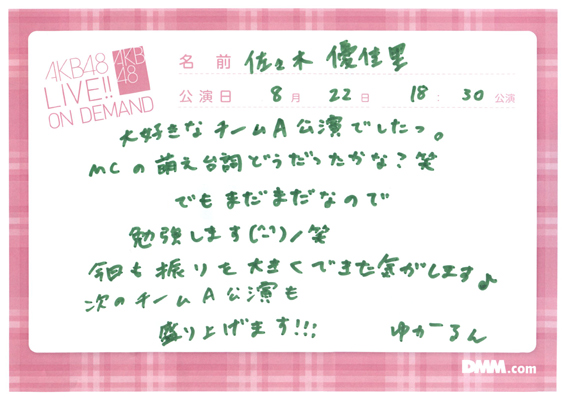 AKB48
LIVE!!
ON DEMAND
AKB
48
名 前 佐々木 優佳里
公演日 8月 22日 18:30公演
大好きなチームA公演でしたっ。
MCの萌え台詞どうだったかな?笑
でもまだまだなので
勉強します(^^)/笑
今日も振りを大きくできた気がします♪
次のチームA公演も
盛り上げます!!!
ゆかーるん
DMM.com